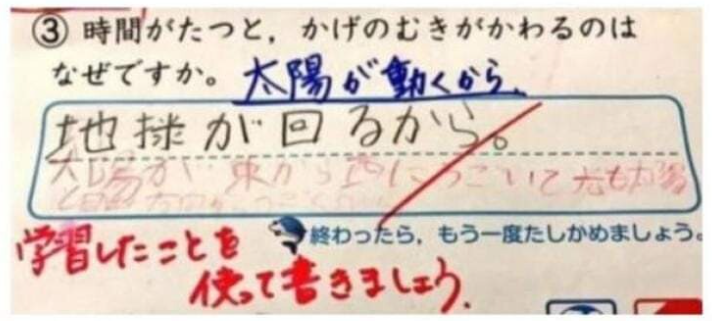 ③ 時間がたつと，かげのむきがかわるのは
なぜですか。 太陽が動くから、
地球が回るから。
太陽が 東から西にうごいて
学習したことを
使って書きましょう。
終わったら，もう一度たしかめましょう。